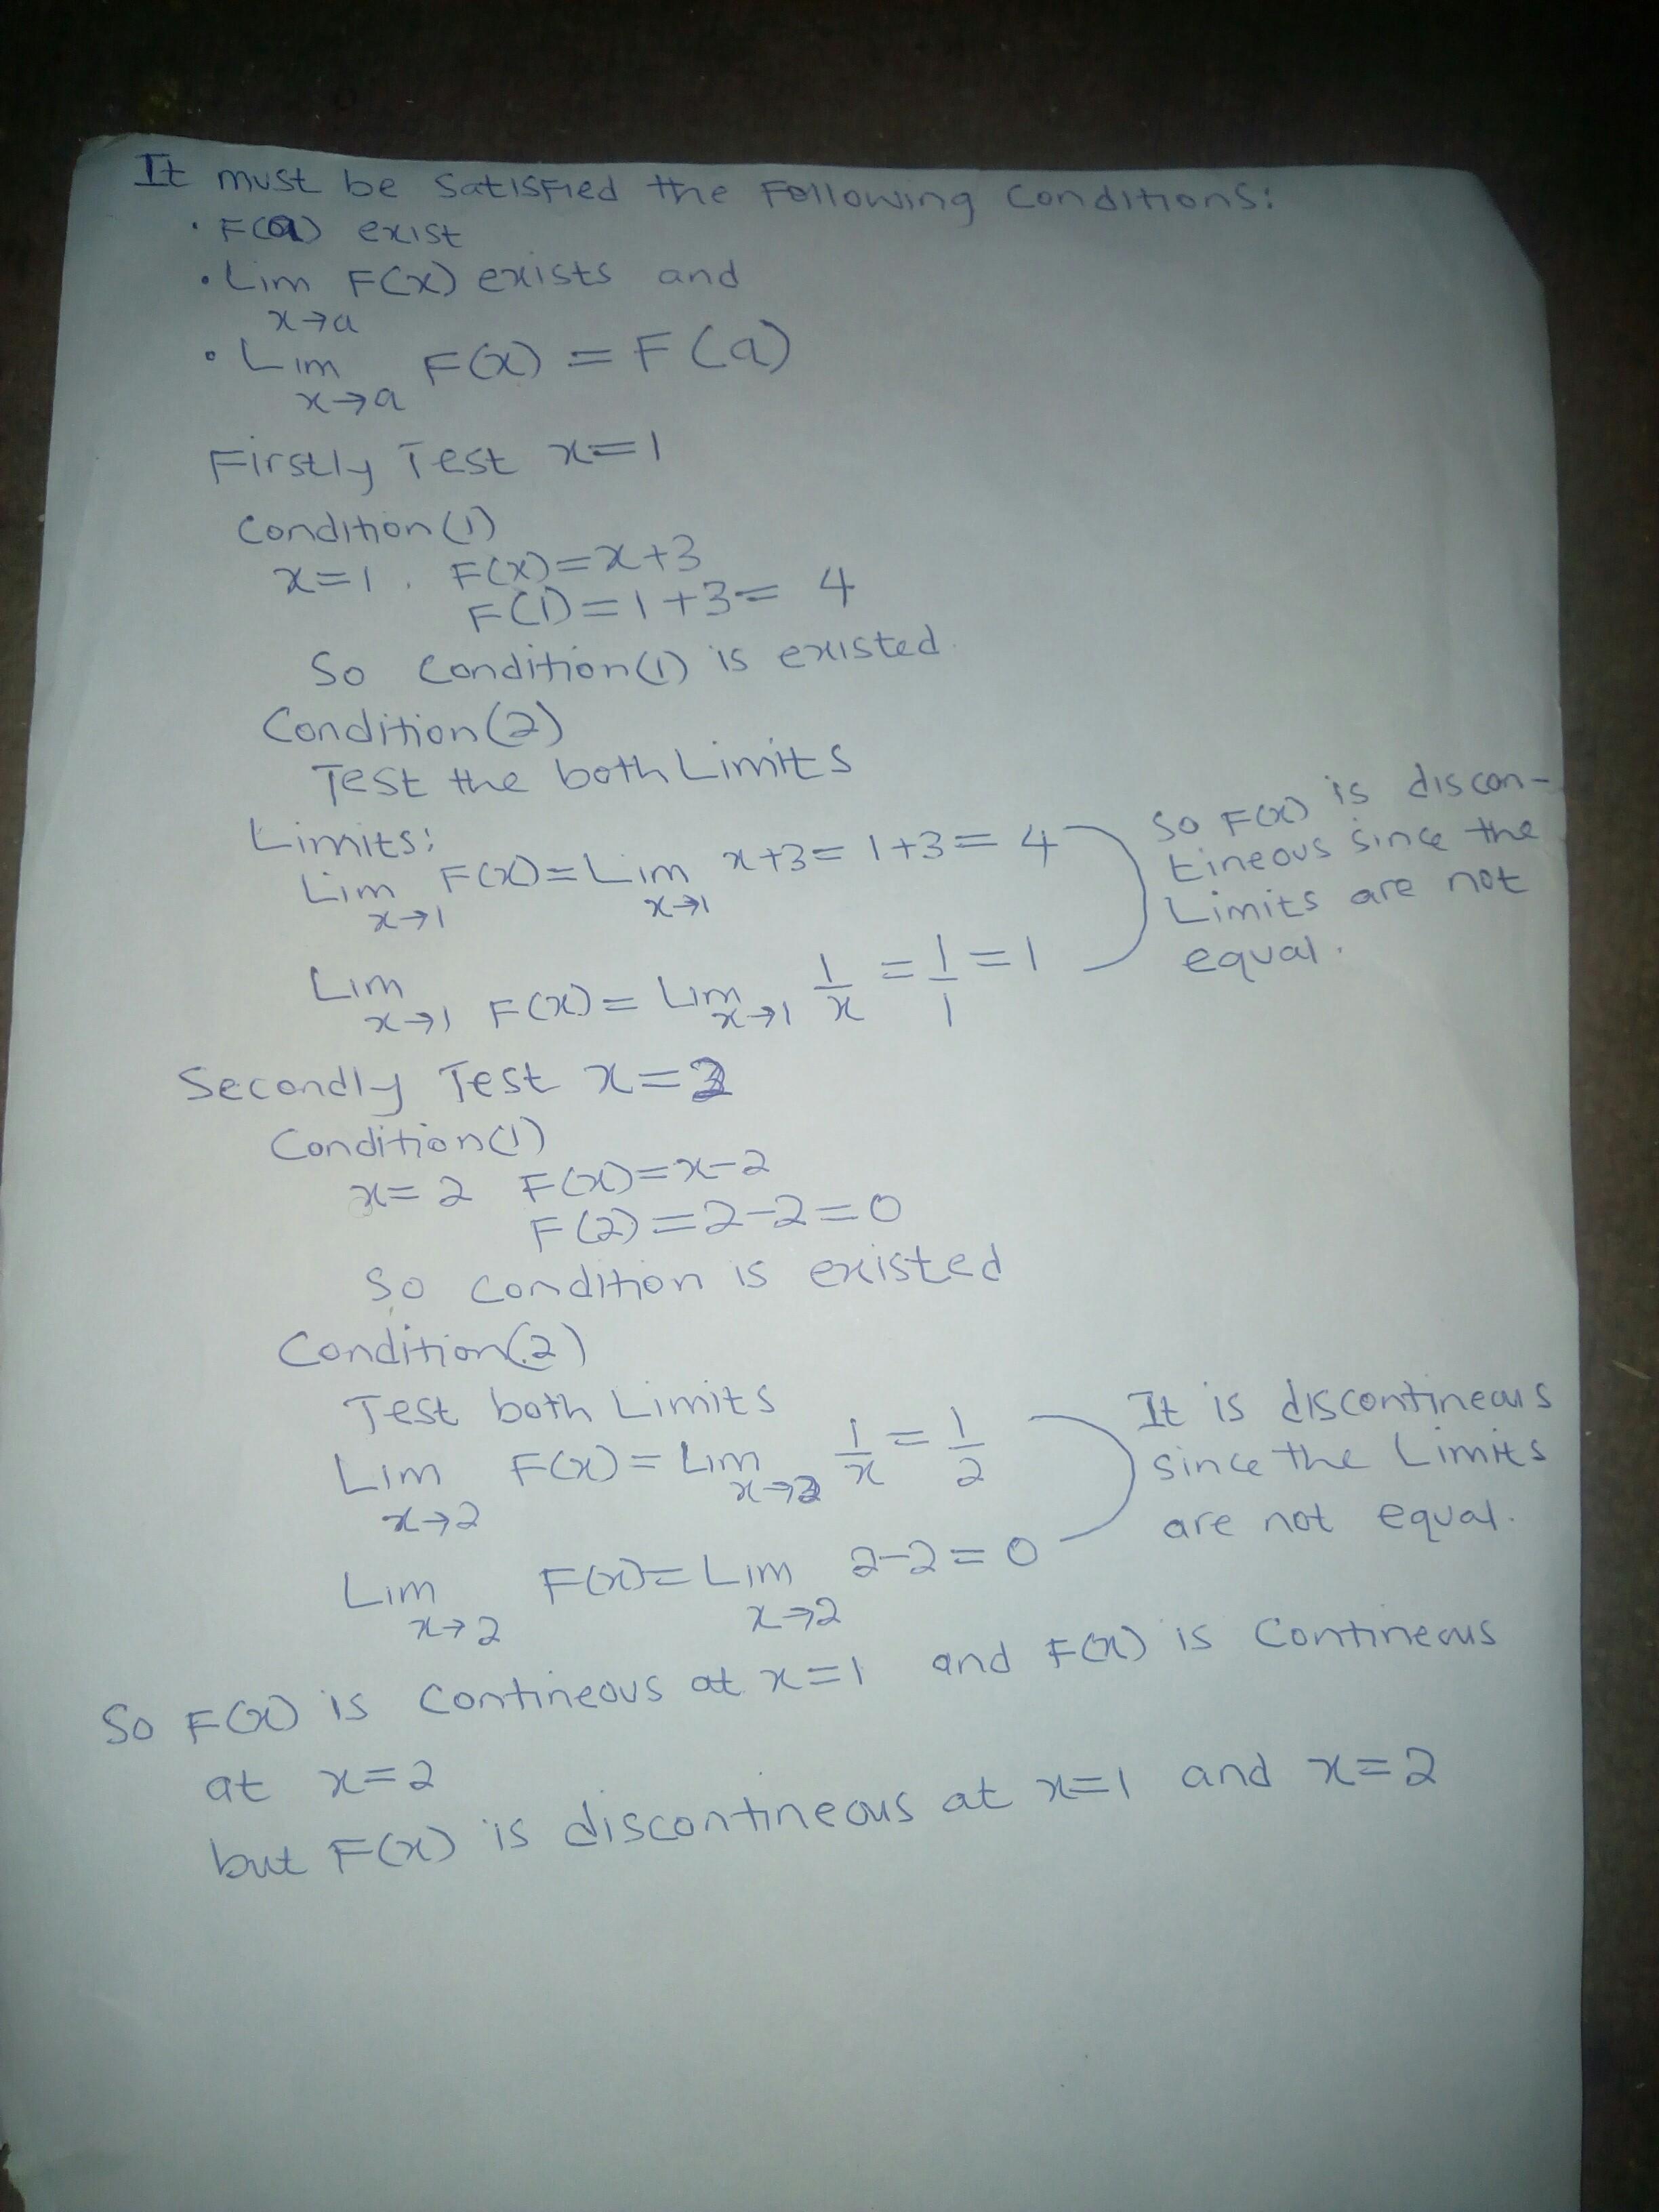 It must be satisfied the Following Conditions:
• F(a) exist
• Lim F(x) exists and
x→a
• Lim F(x) = F(a)
x→a
Firstly Test x=1
Condition(1)
x=1. F(x)=x+3
F(1)=1+3= 4
So Condition(1) is existed.
Condition(2)
Test the both Limits
Limits:
Lim F(x)=Lim x+3=1+3=4
x→1 x→1
So F(x) is discon-
tineous since the
Limits are not
equal.
Lim F(x)= Lim 1/x = 1/1 = 1
x→1 x→1
Secondly Test x=2
Condition(1)
x=2 F(x)=x-2
F(2)=2-2=0
So Condition is existed
Condition(2)
Test both Limits
Lim F(x)=Lim 1/x = 1/2
x→2 x→2
It is discontineous
since the Limits
are not equal.
Lim F(x)=Lim 2-2=0
x→2 x→2
So F(x) is Contineous at x=1 and F(x) is Contineous
at x=2
but F(x) is discontineous at x=1 and x=2